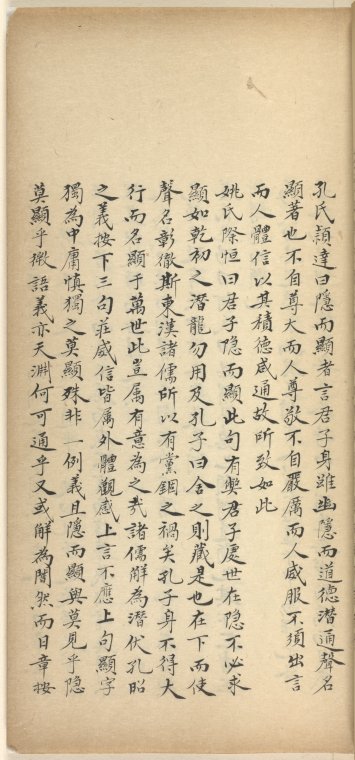 孔氏穎達曰隱而顯者言君子身雖幽隱而道德潛通聲名
顯著也不自尊大而人尊敬不自嚴厲而人威服不須出言
而人體信以其積德咸通故所致如此
姚氏際恒曰君子隐而顯此句有獘君子處世在隐不必求
顯如乾初之潛龍勿用及孔子曰舍之則藏是也在下而使
聲名彰徹斯東漢諸儒所以有黨錮之禍矣孔子身不得大
行而名顯于萬世此豈属有意為之㢤諸儒解為潛伏孔昭
之義按下三句莊威信皆属外體觀感上言不應上句顯字
獨為中庸慎獨之莫顯殊非一例義且隱而顯與莫見乎隐
莫顯乎微語義亦天淵何可通乎又或解為闇然而日章按